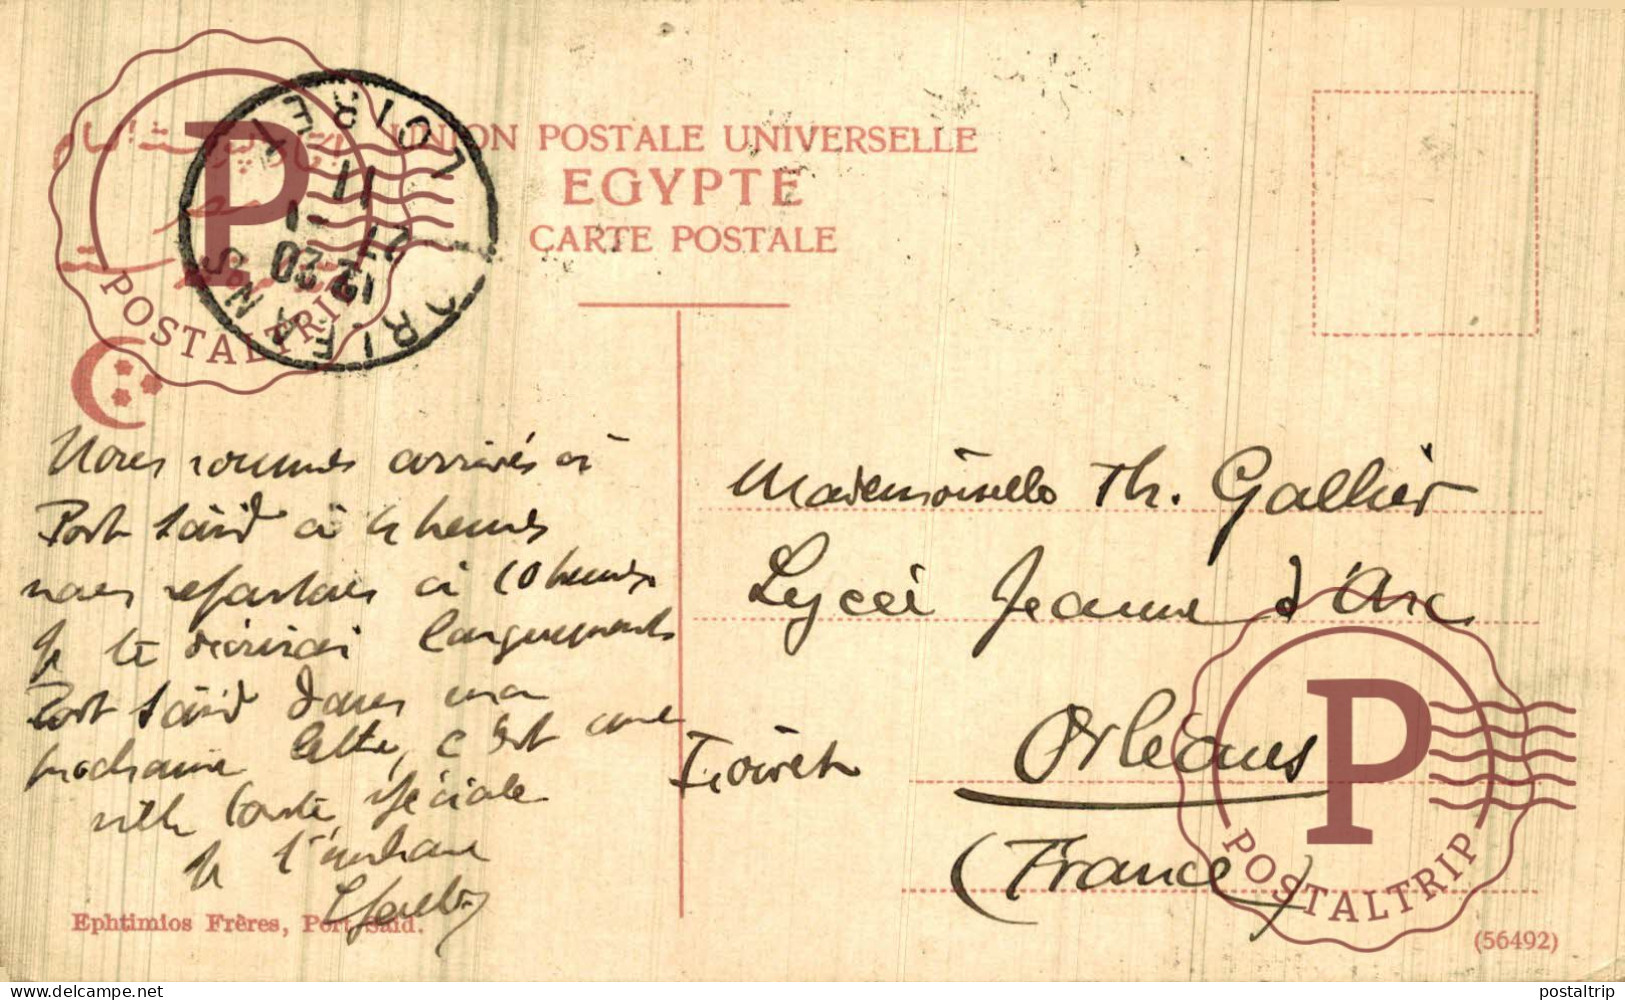 UNION POSTALE UNIVERSELLE
EGYPTE
CARTE POSTALE
LOIRET
11
21 -1
12
ORLEANS
POSTALTRIP
Nous sommes arrivés à
Port Saïd à 4 heures
nous repartons à 10 heures
je te décrirai longuement
Port Saïd dans ma
prochaine lettre, c'est une
ville toute spéciale
je t'embrasse
Mademoiselle Th. Gallier
Lycée Jeanne d'Arc
Orléans
Loiret
(France)
POSTALTRIP
Ephtimios Frères, Port Said.
(56492)
delcampe.net
postaltrip